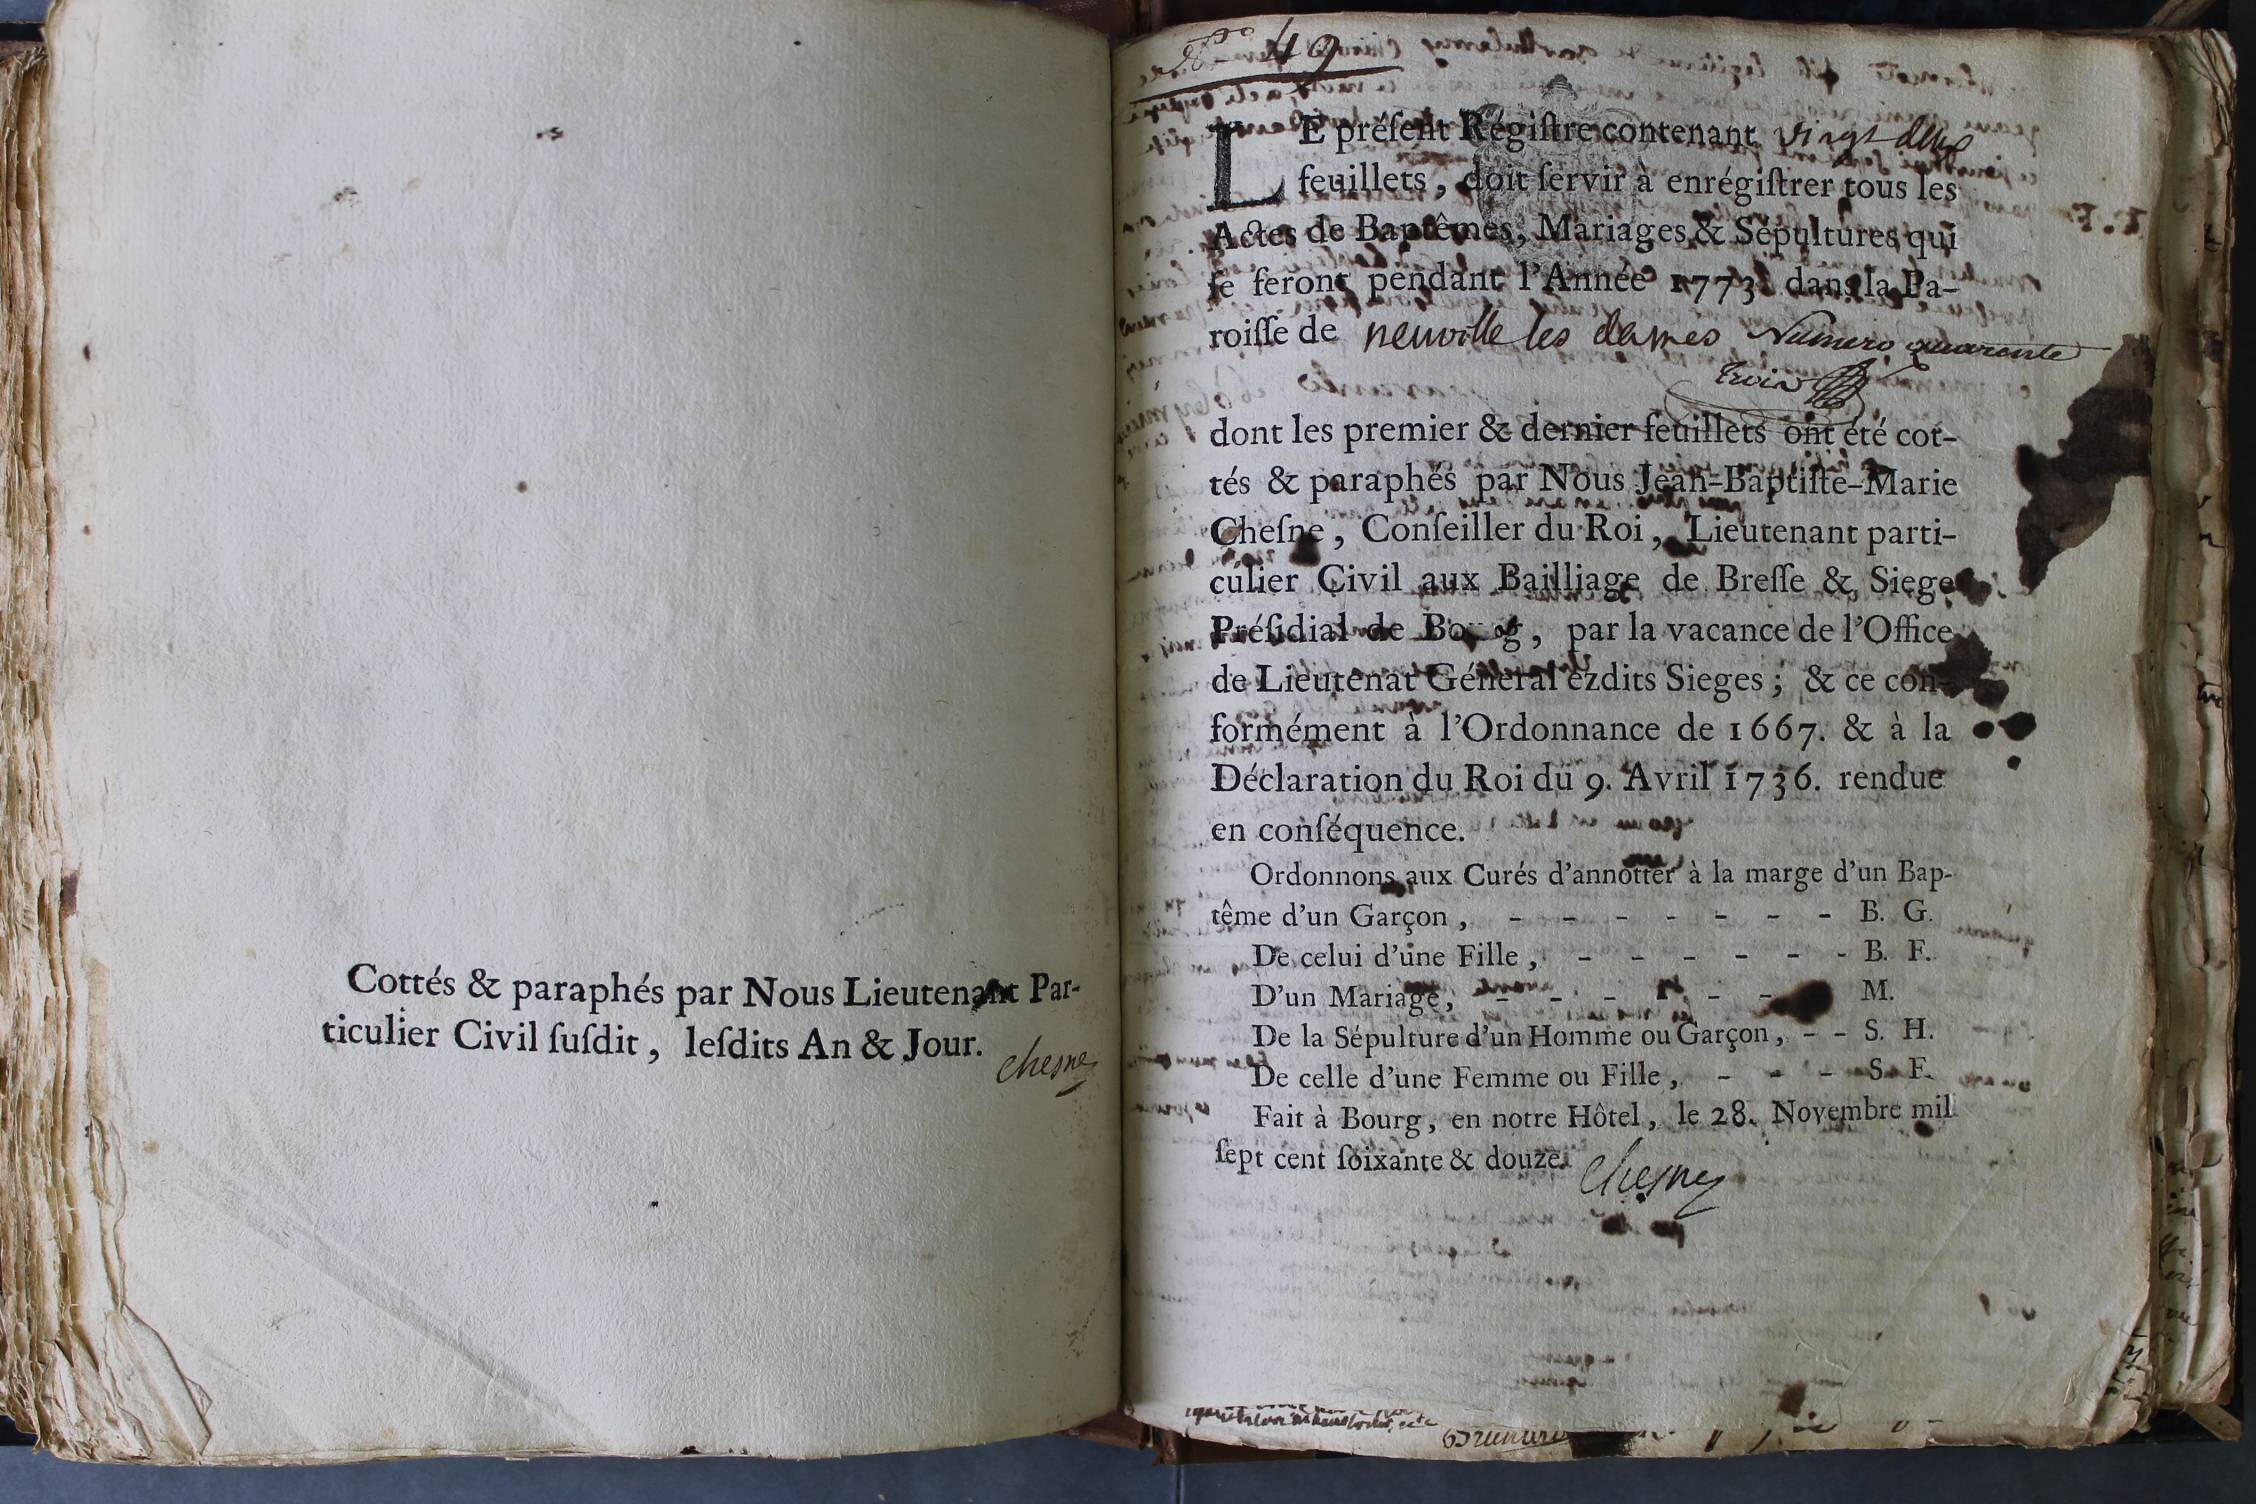 Cottés & paraphés par Nous Lieutenant Par-
ticulier Civil ſuſdit, leſdits An & Jour.
Chesne
49
LE préſent Régiſtre contenant vingt deux
feuillets, doit ſervir à enrégiſtrer tous les
Actes de Baptêmes, Mariages & Sépultures qui
ſe feront pendant l'Année 1773 dans la Pa-
roiſſe de neuville les dames Numero quarente
trois
dont les premier & dernier feuillets ont été cot-
tés & paraphés par Nous Jean-Baptiſte-Marie
Cheſne, Conſeiller du Roi, Lieutenant parti-
culier Civil aux Bailliage de Breſſe & Siege
Préſidial de Bourg, par la vacance de l'Office
de Lieutenat Général ezdits Sieges; & ce con-
formément à l'Ordonnance de 1667. & à la
Déclaration du Roi du 9. Avril 1736. rendue
en conſéquence.
Ordonnons aux Curés d'annotter à la marge d'un Bap-
tême d'un Garçon, - - - - - - - B. G.
De celui d'une Fille, - - - - - - B. F.
D'un Mariage, - - - - - - M.
De la Sépulture d'un Homme ou Garçon, - - S. H.
De celle d'une Femme ou Fille, - - - S. F.
Fait à Bourg, en notre Hôtel, le 28. Novembre mil
ſept cent ſoixante & douze. Chesne